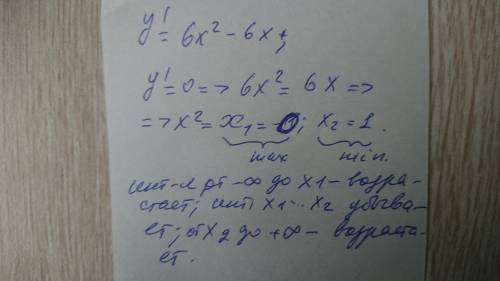 y' = 6x² - 6x;
y' = 0 => 6x² = 6x =>
=> x² = x₁ = 0; x₂ = 1.
max min.
инт-л от -∞ до x1 - возра-
стает; инт x1 - x2 убыва-
ет; от x2 до +∞ - возраста-
ет.